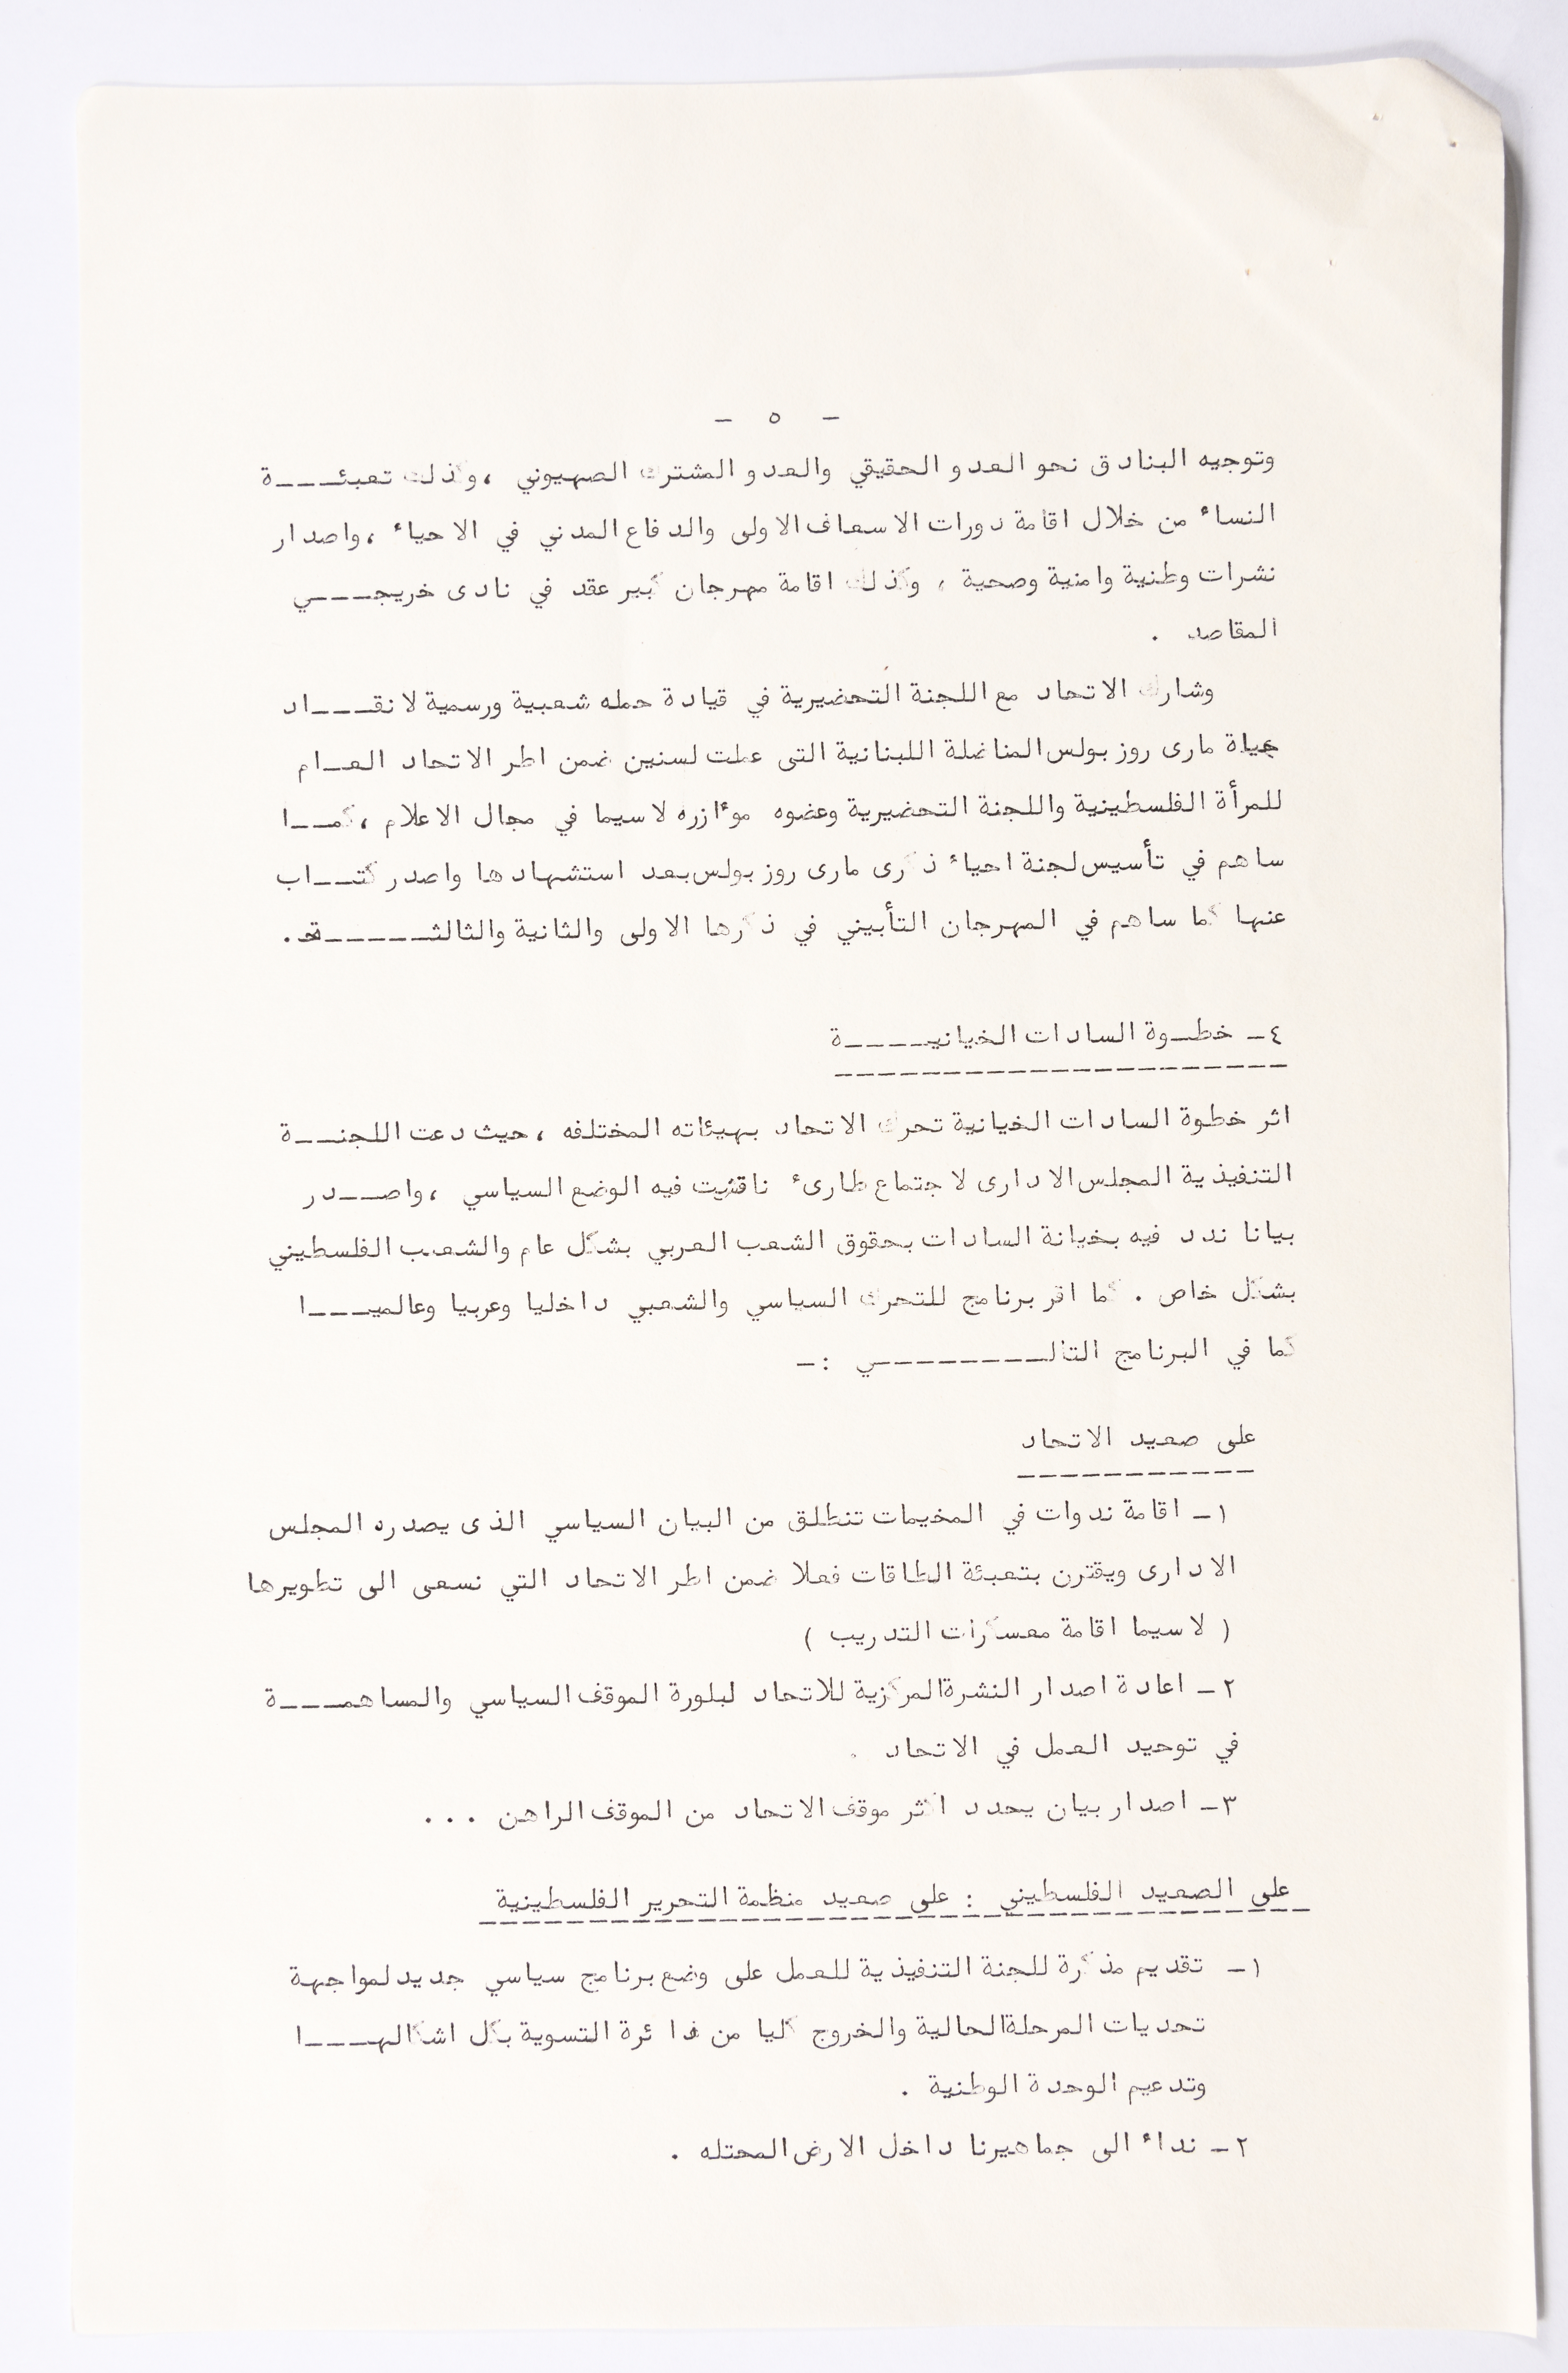 - ٥ -
وتوجيه البنادق نحو العدو الحقيقي والعدو المشترك الصهيوني ، وكذلك تعبئـــــة
النساء من خلال اقامة دورات الاسعاف الاولى والدفاع المدني في الاحياء ، واصدار
نشرات وطنية وامنية وصحية ، وكذلك اقامة مهرجان كبير عقد في نادى خريجـــــي
المقاصد .
وشارك الاتحاد مع اللجنة التحضيرية في قيادة حمله شعبية ورسمية لانقـــــاد
حياة مارى روز بولس المناضلة اللبنانية التى عملت لسنين ضمن اطر الاتحاد العـــام
للمرأة الفلسطينية واللجنة التحضيرية وعضوه موٴازره لاسيما في مجال الاعلام ، كمـــا
ساهم في تأسيس لجنة احياء ذكرى مارى روز بولس بعد استشهادها واصدر كتـــاب
عنها كما ساهم في المهرجان التأبيني في ذكرها الاولى والثانية والثالثـــــــة.
٤ـ خطـوة السادات الخيانيـــــة
اثر خطوة السادات الخيانية تحرك الاتحاد بهيئاته المختلفه ، حيث دعت اللجنـــة
التنفيذية المجلس الادارى لاجتماع طارىء ناقشت فيه الوضع السياسي ، واصـــدر
بيانا ندد فيه بخيانة السادات بحقوق الشعب العربي بشكل عام والشعب الفلسطيني
بشكل خاص . كما اقر برنامج للتحرك السياسي والشعبي داخليا وعربيا وعالميـــــا
كما في البرنامج التالـــــــــــي :ـ
على صعيد الاتحاد
١ـ اقامة ندوات في المخيمات تنطلق من البيان السياسي الذى يصدره المجلس
الادارى ويقترن بتعبئة الطاقات فعلا ضمن اطر الاتحاد التي نسعى الى تطويرها
( لاسيما اقامة معسكرات التدريب )
٢ـ اعادة اصدار النشرة المركزية للاتحاد لبلورة الموقف السياسي والمساهمـــــة
في توحيد العمل في الاتحاد .
٣ـ اصدار بيان يحدد اكثر موقف الاتحاد من الموقف الراهن ...
على الصعيد الفلسطيني : على صعيد منظمة التحرير الفلسطينية
١ـ تقديم مذكرة للجنة التنفيذية للعمل على وضع برنامج سياسي جديد لمواجهة
تحديات المرحلة الحالية والخروج كليا من دائرة التسوية بكل اشكالهـــــا
وتدعيم الوحدة الوطنية .
٢ـ نداء الى جماهيرنا داخل الارض المحتله .